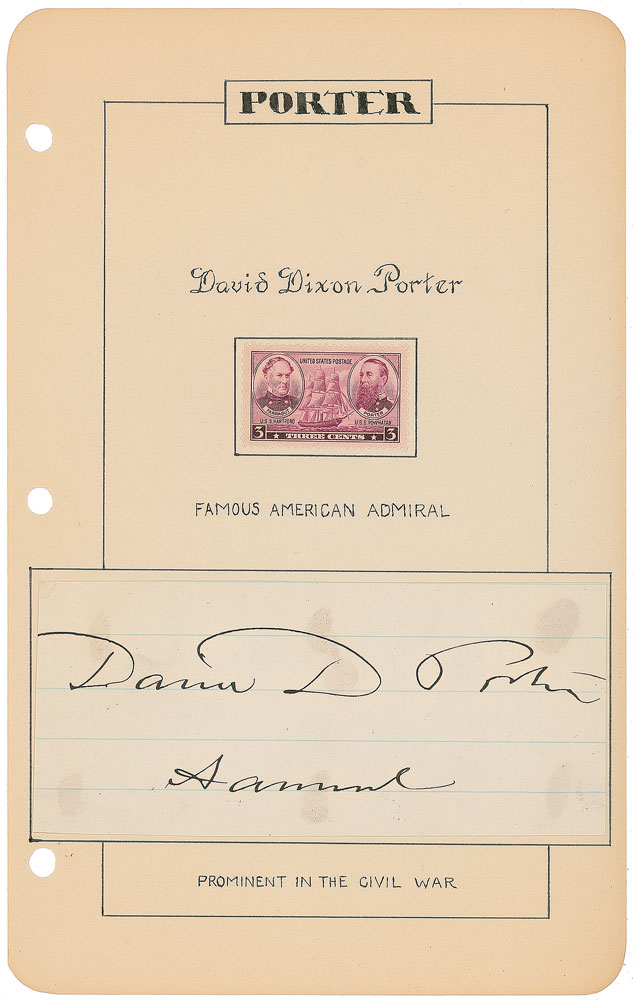 PORTER
David Dixon Porter
UNITED STATES POSTAGE
FARRAGUT
PORTER
U.S.S. HARTFORD
U.S.S. POWHATAN
3 ★ THREE CENTS ★ 3
FAMOUS AMERICAN ADMIRAL
David D Porter
Admiral
PROMINENT IN THE CIVIL WAR